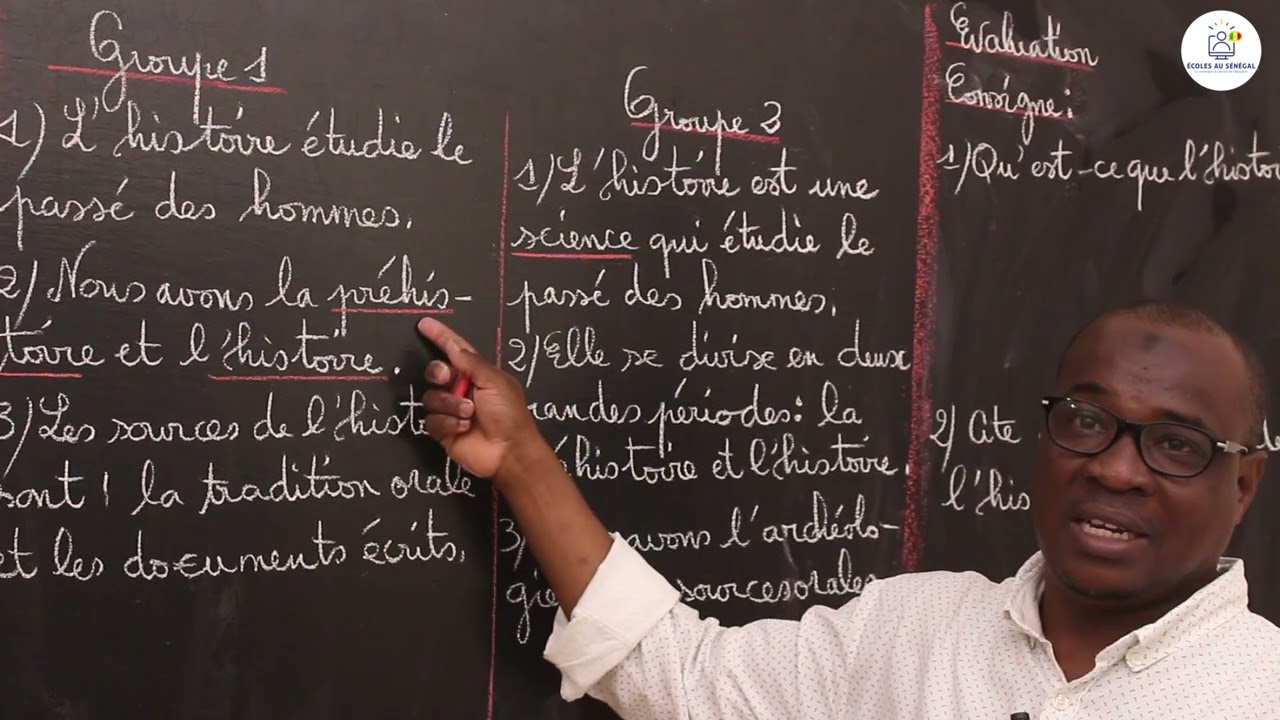 Groupe 1
1) L'histoire étudie le
passé des hommes.
2) Nous avons la préhis-
toire et l'histoire.
3) Les sources de l'histo
sont : la tradition orale
et les documents écrits.
Groupe 3
1) L'histoire est une
science qui étudie le
passé des hommes.
2) Elle se divise en deux
randes périodes : la
éhistoire et l'histoire.
3) avons l'archéolo-
gie sources orales
Evaluation
Consigne :
1) Qu'est-ce que l'histoi
2) Cite
l'his
ÉCOLES AU SÉNÉGAL